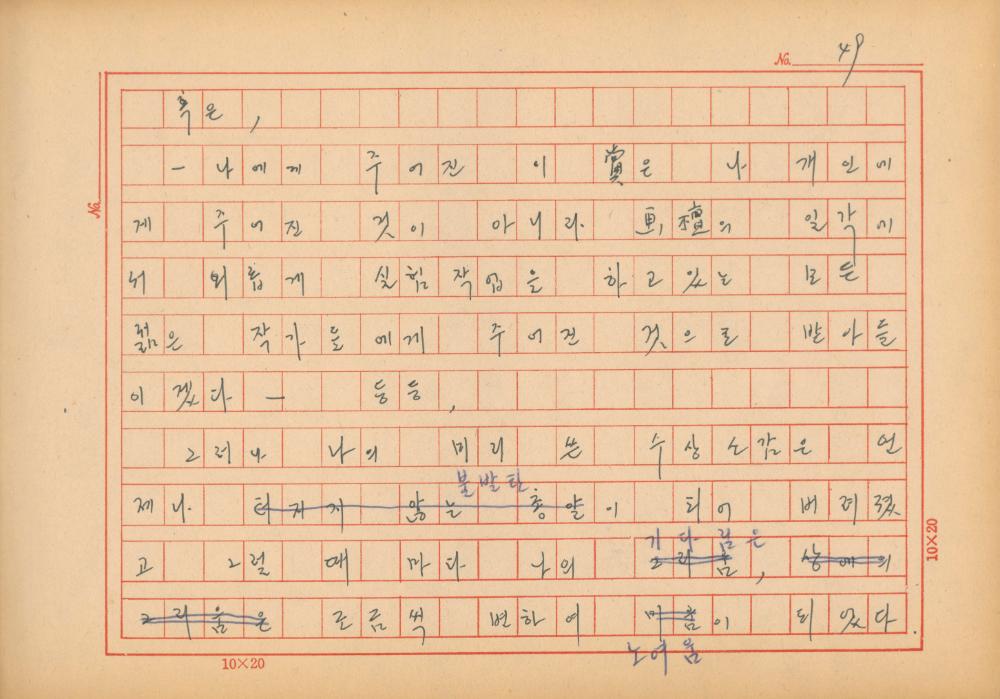 No. 49
혹은,
— 나에게 주어진 이 賞은 나 개인에
게 주어진 것이 아니라 画壇의 일각에
서 외롭게 실험작업을 하고있는 모든
젊은 작가들에게 주어진 것으로 받아들
이겠다 — 등등,
그러나 나의 미리 쓴 수상소감은 언
불발탄
제나 터지지 않는 총알이 되어 버려졌
기다림은
고 그럴 때 마다 나의 그리움, 상에의
그리움은 조금씩 변하여 미움이 되었다.
노여움
No.
10×20
10×20